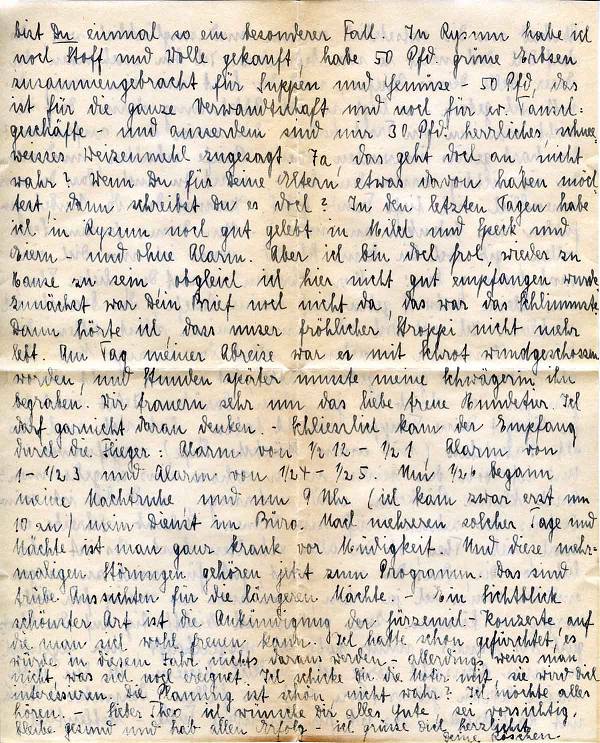 bist Du einmal so ein besonderer Fall. In Rysum habe ich
noch Stoff und Wolle gekauft, habe 50 Pfd. grüne Erbsen
zusammengebracht für Suppen und Gemüse - 50 Pfd, das
ist für die ganze Verwandtschaft und noch für ev. Tausch-
geschäfte - und ausserdem sind mir 30 Pfd. herrliches, schnee-
weisses Weizenmehl zugesagt. Ja, das geht doch an, nicht
wahr? Wenn Du für Deine Eltern etwas davon haben möch
test, dann schreibst du es doch? In den letzten Tagen habe
ich in Rysum noch gut gelebt in Milch und Speck und
Eiern - und ohne Alarm. Aber ich bin doch froh, wieder zu
Hause zu sein, obgleich ich hier nicht gut empfangen wurde
zunächst war Dein Brief noch nicht da, das war das Schlimmste
Dann hörte ich, dass unser fröhlicher Stroppi nicht mehr
lebt. Am Tag meiner Abreise war er mit Schrot wundgeschossen
worden, und Stunden später musste meine Schwägerin ihn
begraben. Wir trauern sehr um das liebe treue Hundetier. Ich
darf garnicht daran denken. - Schliesslich kam der Empfang
durch die Flieger: Alarm von 1/2 12 - 1/2 1, Alarm von
1 - 1/2 3 und Alarm von 1/2 4 - 1/2 5. Um 1/2 6 begann
meine Nachtruhe und um 9 Uhr (ich kam zwar erst um
10 an) mein Dienst im Büro. Nach mehreren solcher Tage und
Nächte ist man ganz krank vor Müdigkeit. Und diese mehr-
maligen Störungen gehören jetzt zum Programm. Das sind
trübe Aussichten für die längeren Nächte. - Ein Lichtblick
schönster Art ist die Ankündigung der Konzerte, auf
die man sich wohl freuen kann. Ich hatte schon gefürchtet, es
würde in diesem Jahr nichts daraus werden - allerdings weiss man
nicht, was sich noch ereignet. Ich schicke dir die Notiz mit, sie wird dich
interessieren. Die Planung ist schön, nicht wahr? Ich möchte alles
hören. - Lieber Theo, ich wünsche dir alles Gute, sei vorsichtig,
bleibe gesund und hab allen Erfolg - ich grüsse dich herzlichst
Deine Röschen.